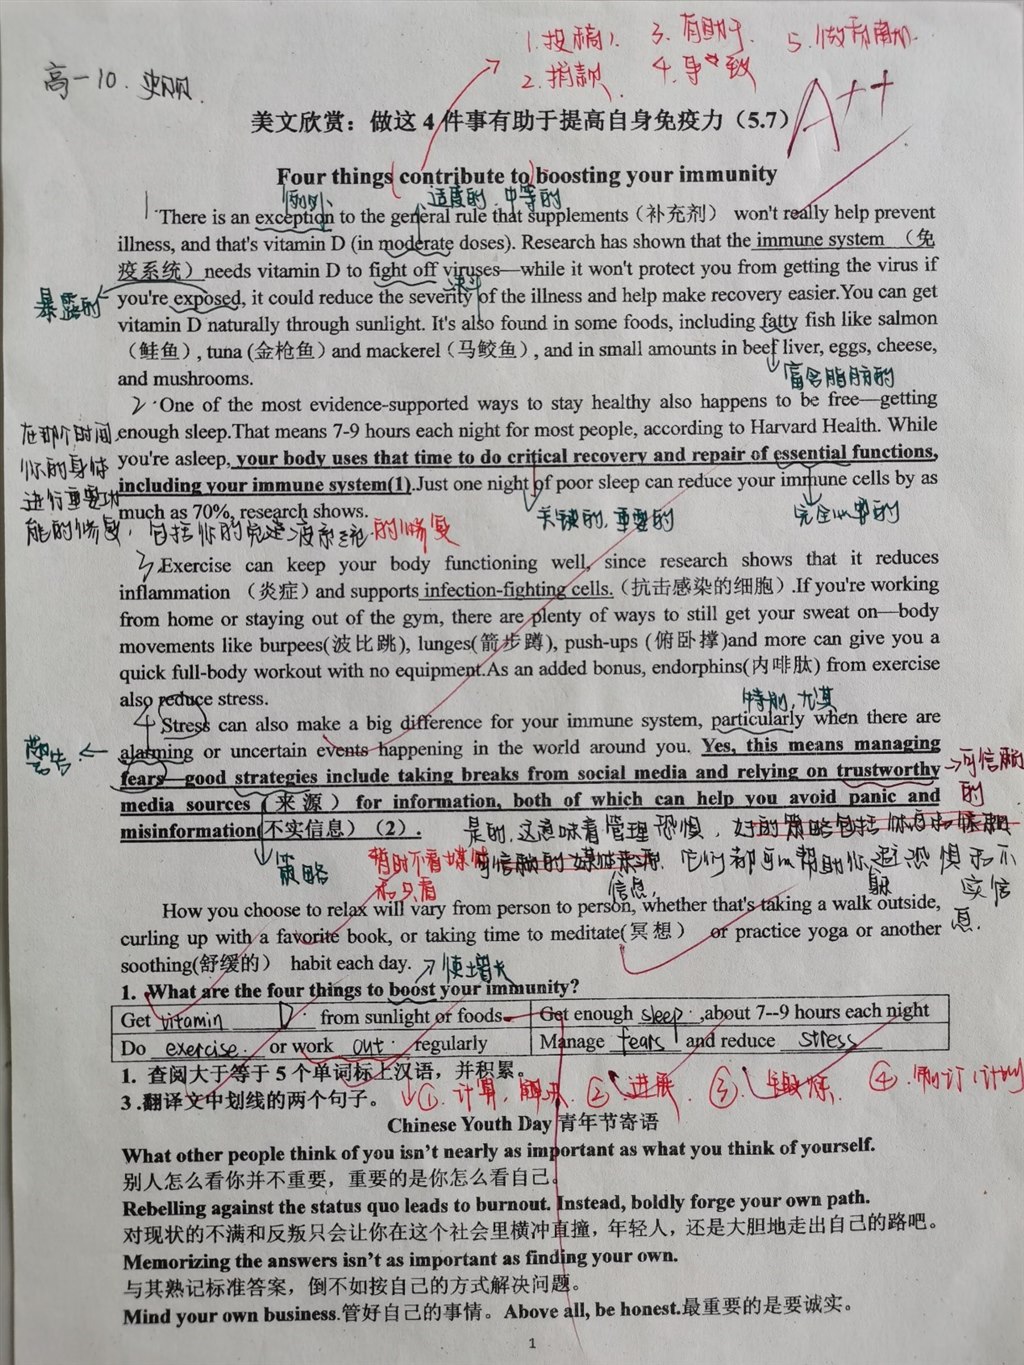 1.投稿 3.有助于 5.做贡献
2.捐款 4.导致
高一10.
A++
美文欣赏：做这4件事有助于提高自身免疫力（5.7）
Four things contribute to boosting your immunity
例外 适度的，中等的
1 There is an exception to the general rule that supplements（补充剂） won't really help prevent
illness, and that's vitamin D (in moderate doses). Research has shown that the immune system （免
疫系统）needs vitamin D to fight off viruses—while it won't protect you from getting the virus if
暴露的
you're exposed, it could reduce the severity of the illness and help make recovery easier.You can get
vitamin D naturally through sunlight. It's also found in some foods, including fatty fish like salmon
（鲑鱼）, tuna (金枪鱼）and mackerel（马鲛鱼）, and in small amounts in beef liver, eggs, cheese,
and mushrooms.
富含脂肪的
2 One of the most evidence-supported ways to stay healthy also happens to be free—getting
enough sleep.That means 7-9 hours each night for most people, according to Harvard Health. While
you're asleep, your body uses that time to do critical recovery and repair of essential functions,
including your immune system(1).Just one night of poor sleep can reduce your immune cells by as
much as 70%, research shows.
关键的，重要的
完全必要的
在那个时间,
你的身体
进行重要功
能的修复，包括你的免疫系统的修复
3 Exercise can keep your body functioning well, since research shows that it reduces
inflammation （炎症）and supports infection-fighting cells.（抗击感染的细胞）.If you're working
from home or staying out of the gym, there are plenty of ways to still get your sweat on—body
movements like burpees(波比跳), lunges(箭步蹲), push-ups (俯卧撑)and more can give you a
quick full-body workout with no equipment.As an added bonus, endorphins(内啡肽) from exercise
also reduce stress.
特别，尤其
4 Stress can also make a big difference for your immune system, particularly when there are
警告
alarming or uncertain events happening in the world around you. Yes, this means managing
fears—good strategies include taking breaks from social media and relying on trustworthy
可信赖的
media sources（来源）for information, both of which can help you avoid panic and
misinformation(不实信息）（2）.
策略
是的，这意味着管理恐惧，好的策略包括
暂时不看
和只看
可信赖的媒体来源 信息，它们都可以帮助你避免恐惧和不实信息.
How you choose to relax will vary from person to person, whether that's taking a walk outside,
curling up with a favorite book, or taking time to meditate(冥想） or practice yoga or another
soothing(舒缓的） habit each day.
使增长
1. What are the four things to boost your immunity?
Get vitamin D from sunlight or foods
Get enough sleep ,about 7--9 hours each night
Do exercise or work out regularly
Manage fears and reduce stress
1. 查阅大于等于5个单词标上汉语，并积累。
① 计算，解决 ② 进展 ③ 锻炼 ④ 制订计划
3 .翻译文中划线的两个句子。
Chinese Youth Day 青年节寄语
What other people think of you isn't nearly as important as what you think of yourself.
别人怎么看你并不重要，重要的是你怎么看自己。
Rebelling against the status quo leads to burnout. Instead, boldly forge your own path.
对现状的不满和反叛只会让你在这个社会里横冲直撞，年轻人，还是大胆地走出自己的路吧。
Memorizing the answers isn't as important as finding your own.
与其熟记标准答案，倒不如按自己的方式解决问题。
Mind your own business.管好自己的事情。Above all, be honest.最重要的是要诚实。
1